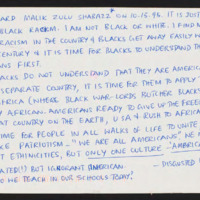 ARD MALIK ZULU SHABAZZ ON 10.15.96. IT IS JUST
BLACK RACISM. I AM NOT BLACK OR WHITE. I FIND
RACISM IN THE COUNTRY & BLACKS GET AWAY EASILY
CENTURY & IT IS TIME FOR BLACKS TO UNDERSTAND TH
ANS FIRST.
ACKS DO NOT UNDERSTAND THAT THEY ARE AMERIC
SEPARATE COUNTRY, IT IS TIME FOR THEM TO APPLY
AFRICA (WHERE BLACK WAR-LORDS BUTCHER BLACK
Y AFRICAN. AMERICANS READY TO GIVE UP THE FREED
AT COUNTRY ON THE EARTH, USA & RUSH TO AFRICA
TIME FOR PEOPLE IN ALL WALKS OF LIFE TO UNITE
E PATRIOTISM - "WE ARE ALL AMERICANS" WE
T ETHNICITIES, BUT ONLY ONE CULTURE - "AMERICA
ATED(!) BUT IGNORANT AMERICAN
- DISGUSTED
O WE TEACH IN OUR SCHOOLS TODAY!